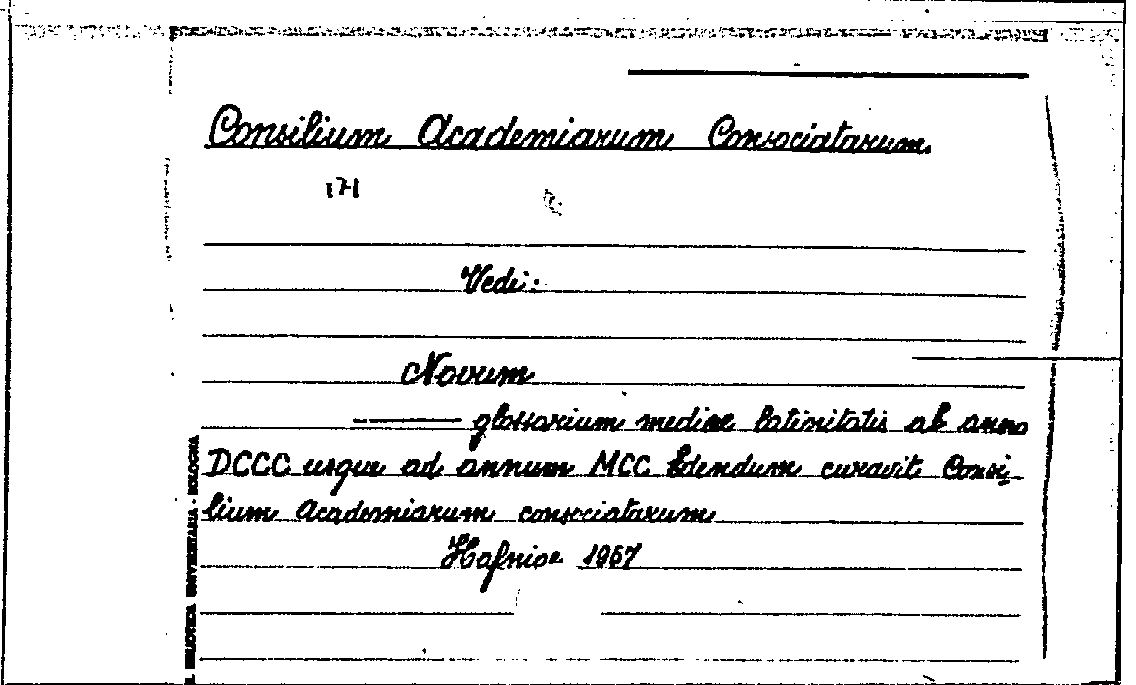 Consilium Academiarum Consociatarum
171
Vedi:
Novum
——— glossarium mediae latinitatis ab anno
DCCC usque ad annum MCC Edendum curavit Consi-
lium Academiarum consociatarum
Hafniae 1957
BIBLIOTECA UNIVERSITARIA - BOLOGNA